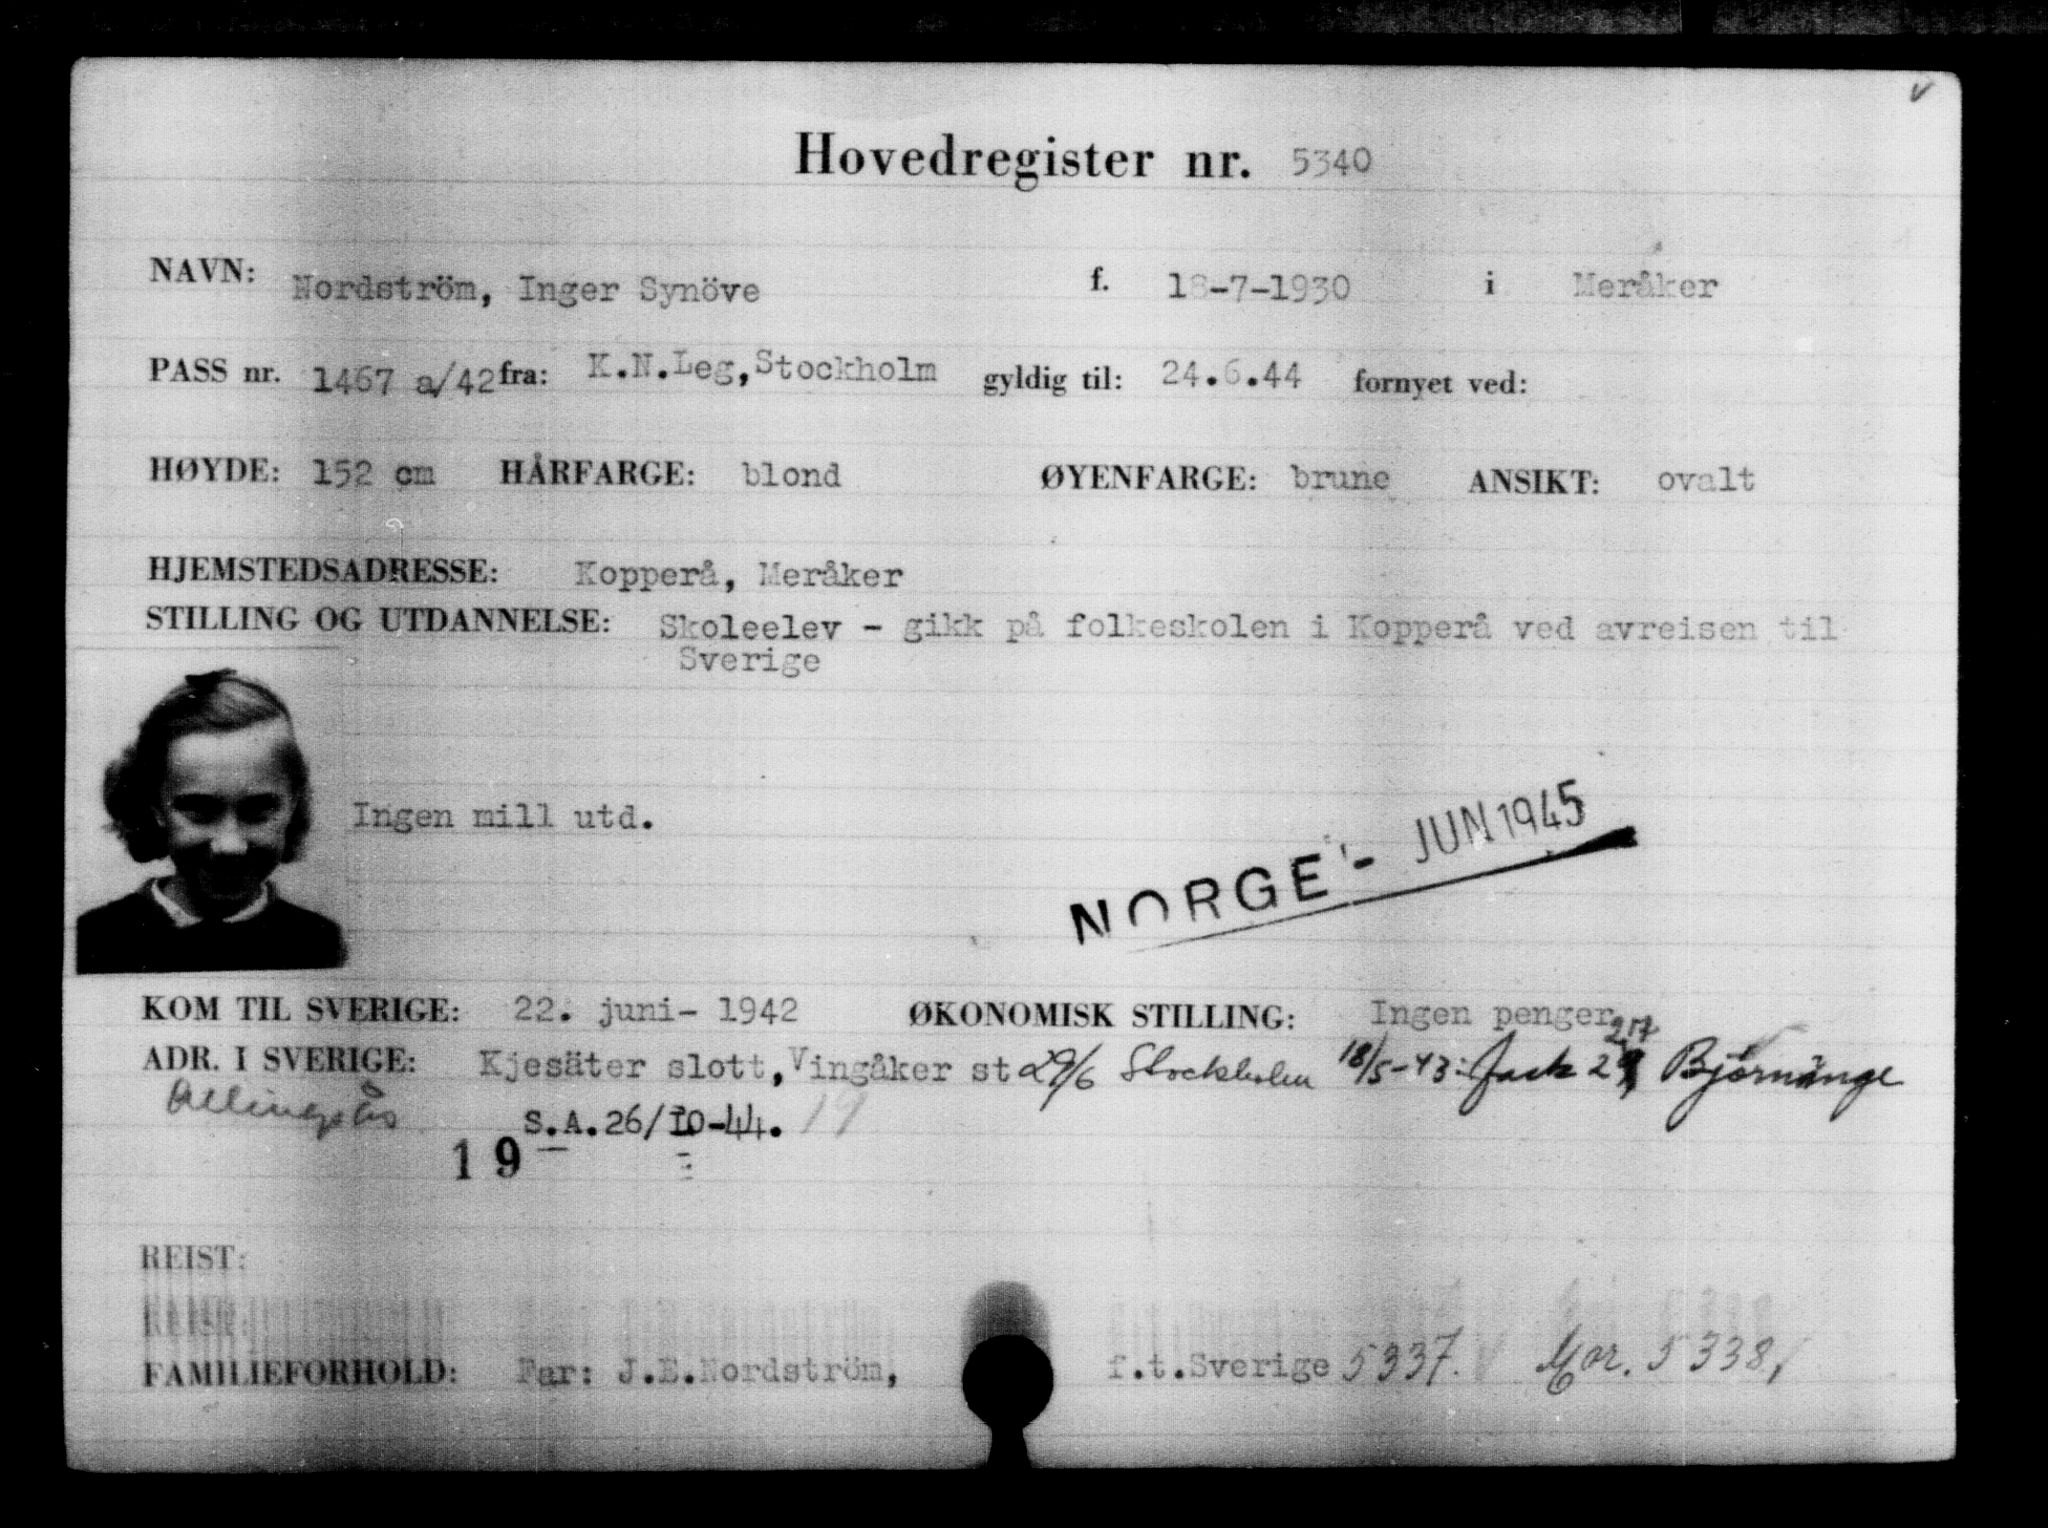 Hovedregister nr. 5340
NAVN: Nordström, Inger Synöve f. 18-7-1930 i Meråker
PASS nr. 1467 a/42 fra: K.N.Leg,Stockholm gyldig til: 24.6.44 fornyet ved:
HØYDE: 152 cm HÅRFARGE: blond ØYENFARGE: brune ANSIKT: ovalt
HJEMSTEDSADRESSE: Kopperå, Meråker
STILLING OG UTDANNELSE: Skoleelev - gikk på folkeskolen i Kopperå ved avreisen til
Sverige
Ingen mill utd.
NORGE - JUN 1945
KOM TIL SVERIGE: 22. juni- 1942 ØKONOMISK STILLING: Ingen penger
ADR. I SVERIGE: Kjesäter slott, Vingåker st 29/6 Stockholm 18/5-43: Björnänge
Allingsås S.A.26/10-44. 19
19
REIST:
FAMILIEFORHOLD: Far: J.E.Nordström, f.t.Sverige 5337. Mor. 5338,